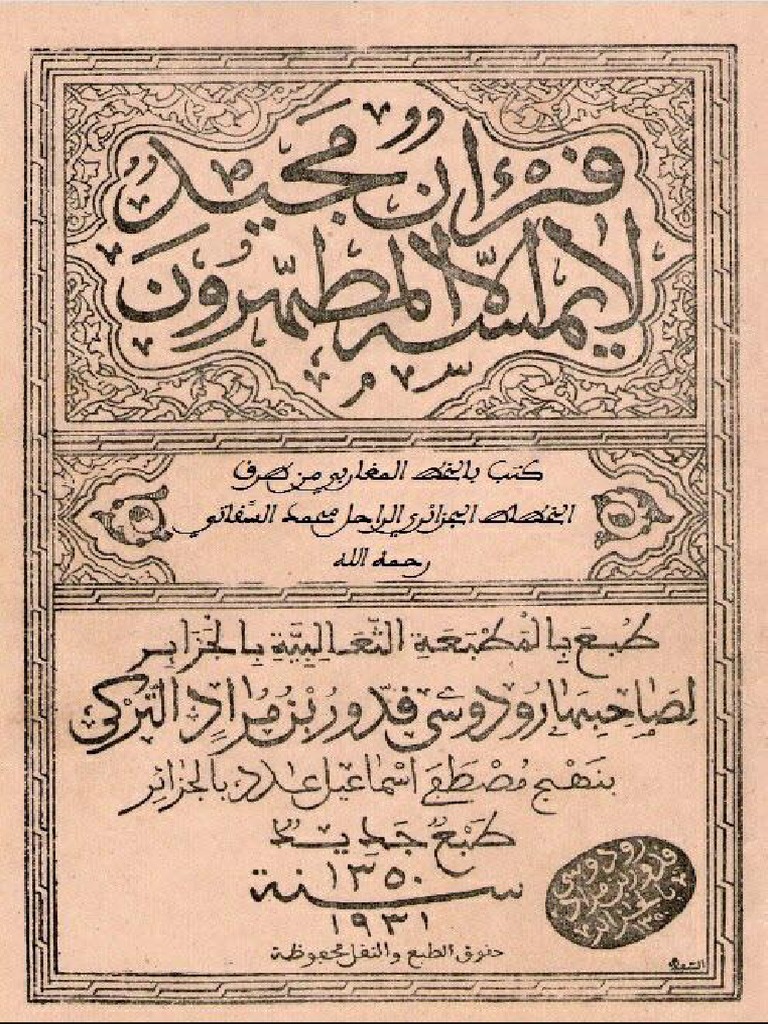 قرءان مجيد
لا يمسه الا المطهرون
كتب بالخط المغاربي من طرف
الخطاط الجزائري الراحل محمد السفاتي
رحمه الله
طُبعَ بِالْمَطْبَعَةِ الثَّعَالِبِيَّةِ بِالْجَزَايِر
لِصَاحِبِهَا رُودُوسِي قَدُّور بْنُ مُرَادِ التُّرْكِي
بنهج مُصْطَفَى اسْمَاعِيل عدد بالجزائر
طَبْعٌ جَدِيدٌ
١٣٥٠
سنة
١٩٣١
حقوق الطبع والنقل محفوظة
رودوسي
قدور بن مراد